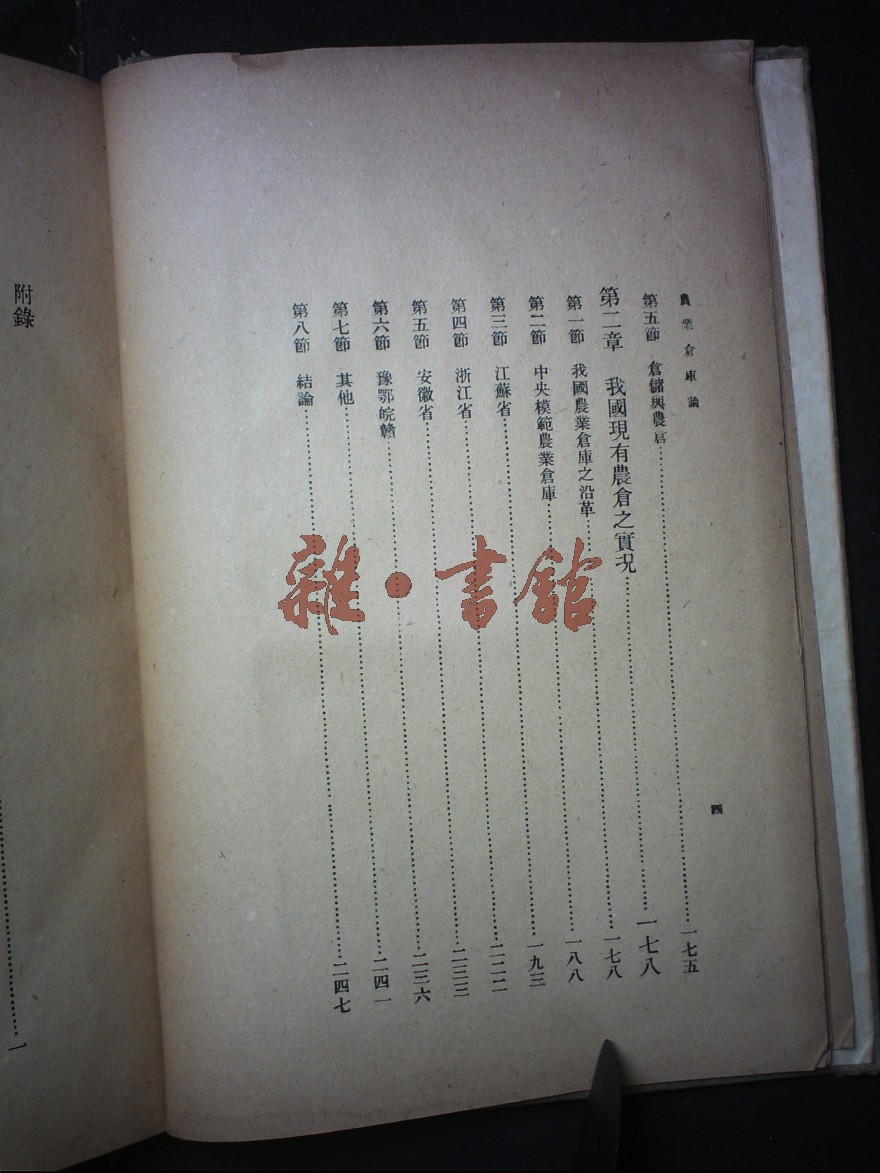 農業倉庫論
第五節 倉儲與農……一七五
第二章 我國現有農倉之實況……一七八
第一節 我國農業倉庫之沿革……一七八
第二節 中央模範農業倉庫……一八八
第三節 江蘇省……一九三
第四節 浙江省……二二二
第五節 安徽省……二三三
第六節 豫鄂皖贛……二三六
第七節 其他……二四一
第八節 結論……二四七
四
附錄……一
雜·書館